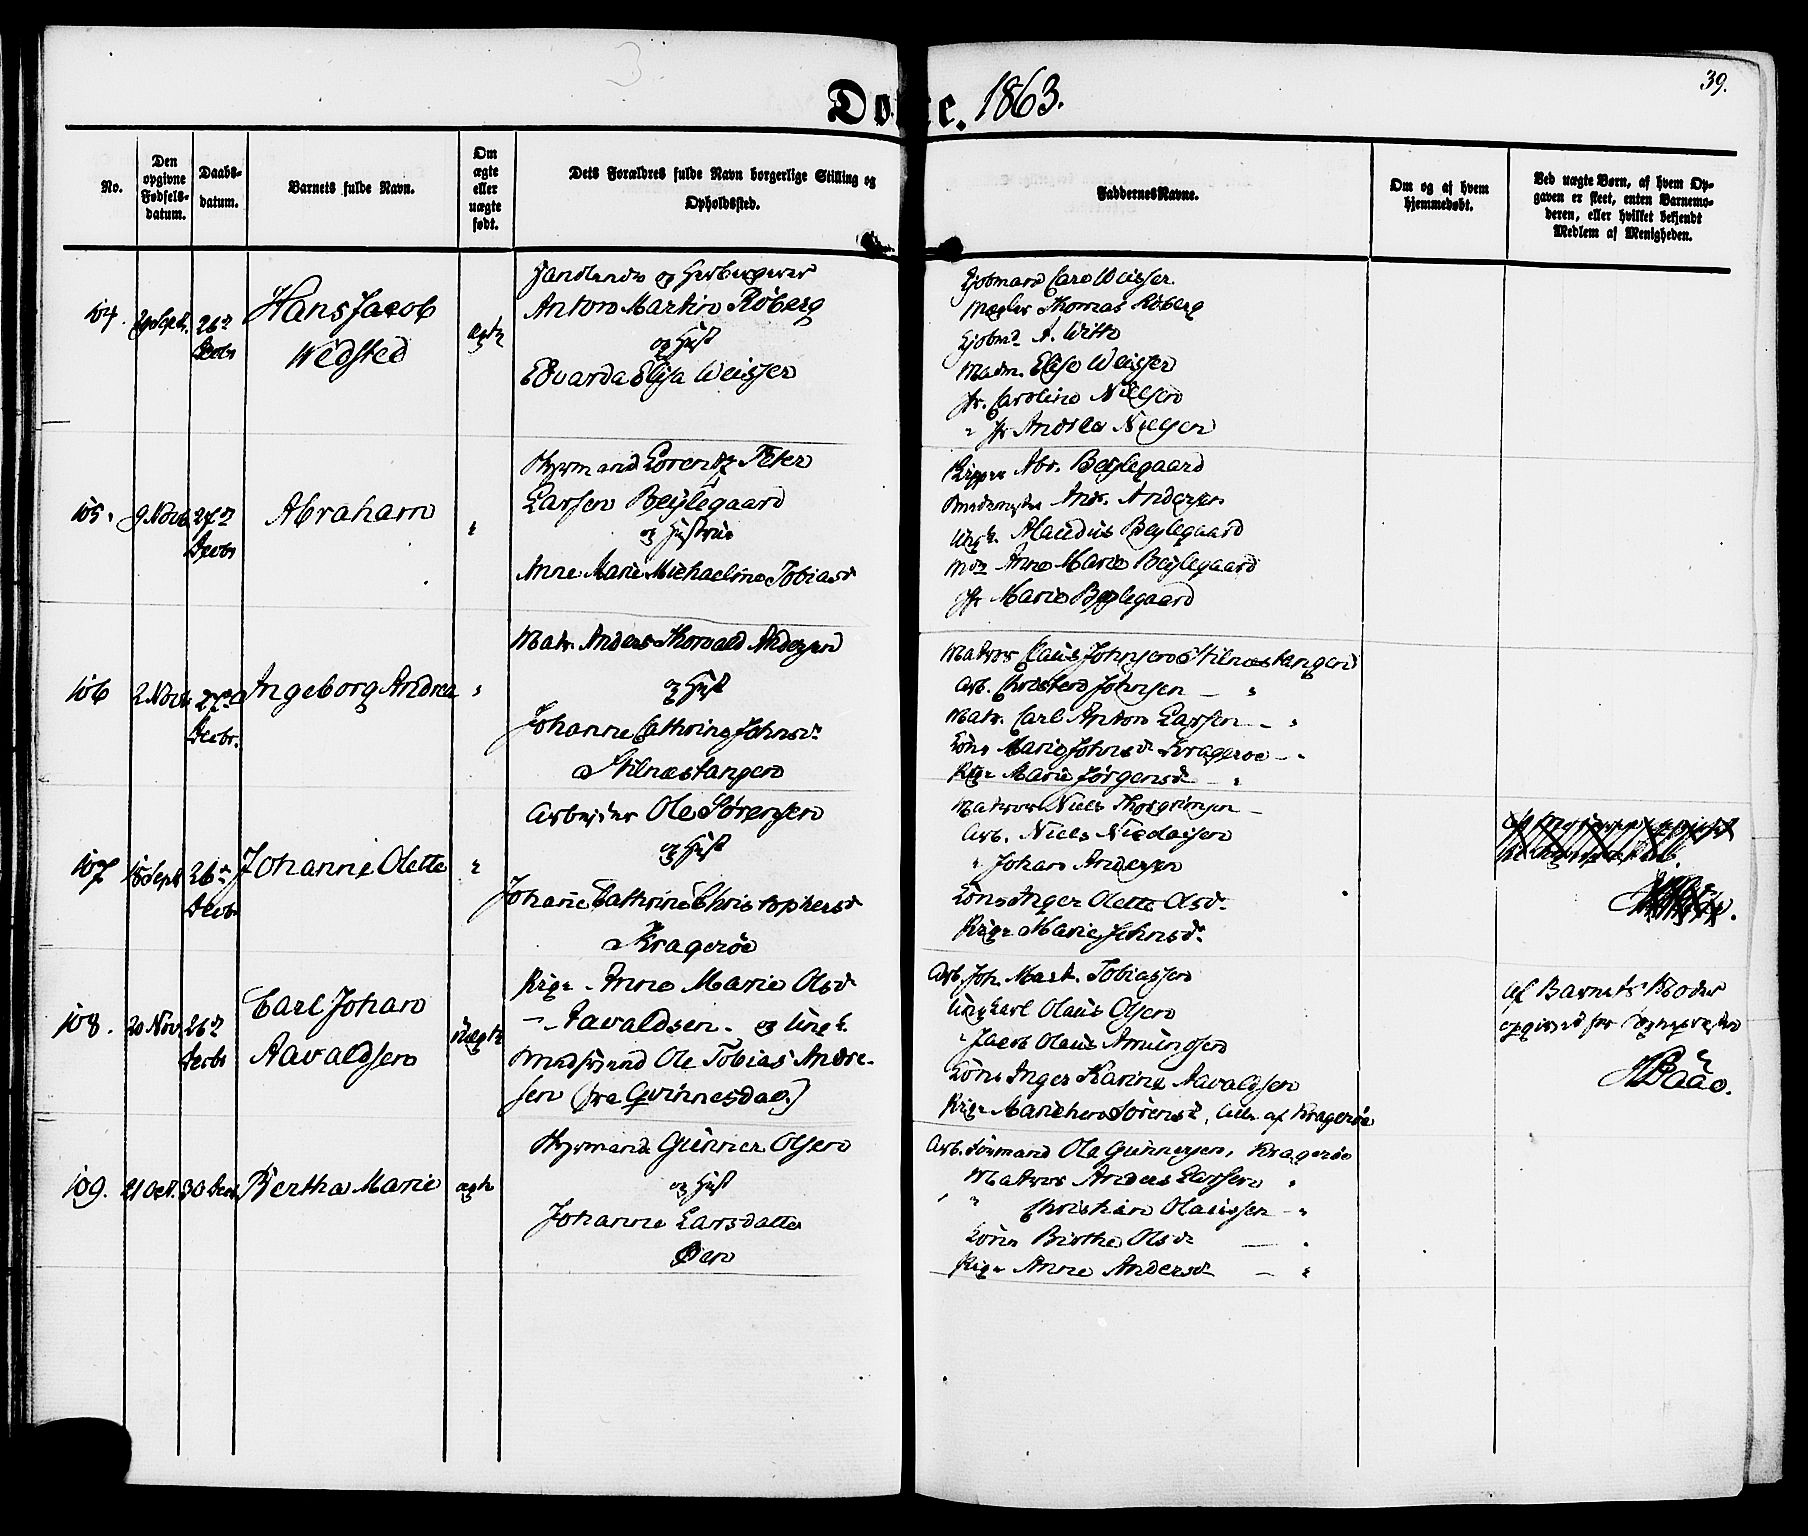 Døbte. 1863.
39.
No.
Den opgivne Fødsels-datum.
Daabs-datum.
Barnets fulde Navn.
Om ægte eller uægte født.
Dets Forældres fulde Navn borgerlige Stilling og Opholdssted.
Faddernes Navne.
Om og af hvem hjemmedøbt.
Ved uægte Børn, af hvem Op-gaven er skeet, enten Barnemo-deren, eller hvilket bekjendt Medlem af Menigheden.
104.
Sept.
26de Decbr
Hans Jacob
Wedsted
ægte
Handlende og Herbergerer
Anton Martin Röberg
og Hust
Edvarda Elisa Weisser
Kjøbmand Carl Weisser
Mægler Thomas Röberg
Kjøbmd A. Witth
Madm. Elise Weisser
Jfr. Caroline Nielsen
" Jfr Andrea Nielsen
105.
9 Novb
27de Decbr
Abraham
"
Styrmand Lorentz Peter
Larsen Beylegaard
og Hustrue
Anne Marie Michaeline Tobiasd
Skipper Abr. Beylegaard
Andr. Andersen
Ungk. Claudius Beylegaard
Mdm Anne Marie Beylegaard
Jfr Marie Beylegaard
106
2 Novb
27de Decbr.
Ingeborg Andrea
"
Matr. Anders Thorvald Andersen
og Hust
Johanne Cathrine Johnsd.
Stilnæstangen
Matros Claus Johnsen Stilnæstangen
Arb. Christen Johnsen — "
Matr. Carl Anton Larsen — "
Kone Marie Johnsd Kragerøe — "
Pige Marie Jørgensd — "
107
18 Sept
26de Decbr
Johanne Olette
"
Arbeider Ole Sørensen
og Hust
Johanne Cathrine Christophersd
Kragerøe
Matros Niels Thorgrimsen —
Arb. Niels Nicolaisen
" Johan Andersen
Kone Inger Olette Olsd.
Pige Marie Johnsd.
108.
20 Nov.
26de Decbr
Carl Johan
Aavaldsen
Uægte
Pige Anne Marie Olsd
— Aavaldsen. og Ungk.
Ole Tobias Andre-
sen (fra Qvinnesdal)
Arb. Joh. Mart. Tobiassen
Ungkarl Olaus Olsen
" Jacob Olaus Amundsen
Kone Inger Karine Aavaldsen
Pige Mariken Sørensd, Alle af Kragerøe
af Barnets Moder
opgivet for Sognepresten
109.
21 Oct.
30 Decb
Bertha Marie
ægte
Styrmand Gunner Olsen
og Hust
Johanne Larsdatter
Øen
Arb. Formand Ole Gunnersen, Kragerøe
Matros Anders Larssen "
" Christian Olaussen — "
Kone Birthe Olsd — "
Pige Anne Andersd — "